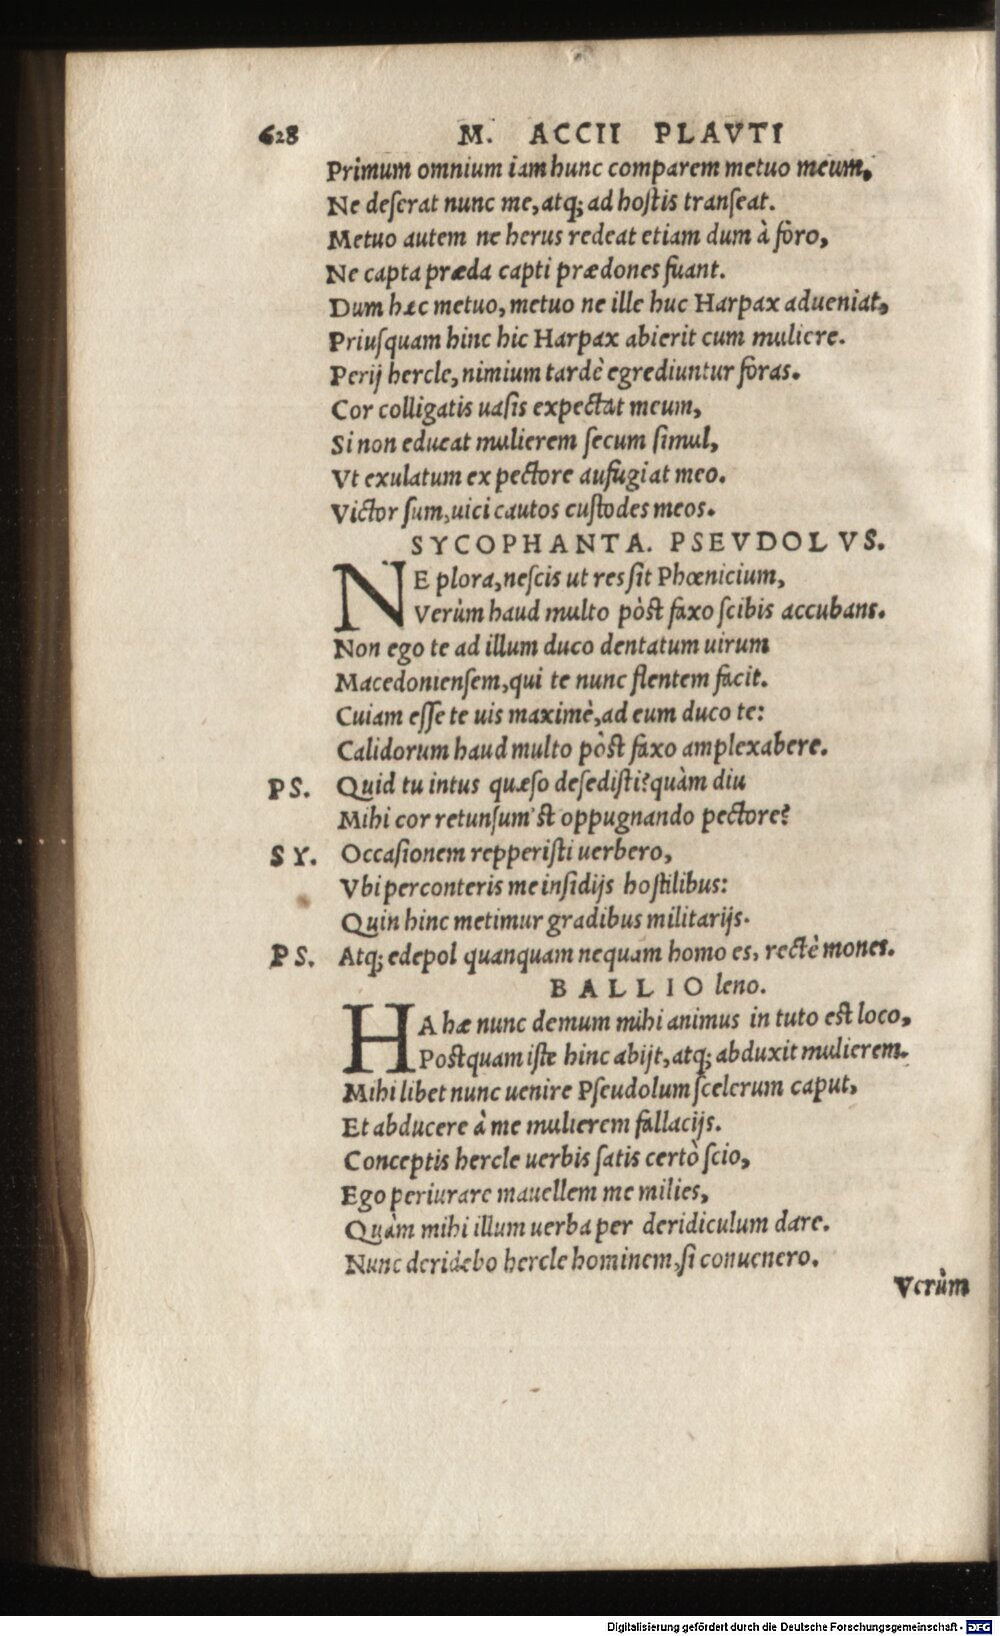 628 M. ACCII PLAVTI
Primum omnium iam hunc comparem metuo meum,
Ne deserat nunc me, atq; ad hostis transeat.
Metuo autem ne herus redeat etiam dum à foro,
Ne capta præda capti prædones fuant.
Dum hæc metuo, metuo ne ille huc Harpax adueniat,
Priusquam hinc hic Harpax abierit cum muliere.
Perij hercle, nimium tardè egrediuntur foras.
Cor colligatis uasis expectat meum,
Si non educat mulierem secum simul,
Vt exulatum ex pectore aufugiat meo.
Victor sum, uici cautos custodes meos.
SYCOPHANTA. PSEVDOLVS.
NE plora, nescis ut res sit Phœnicium,
Verùm haud multo pòst faxo scibis accubans.
Non ego te ad illum duco dentatum uirum
Macedoniensem, qui te nunc flentem facit.
Cuiam esse te uis maximè, ad eum duco te:
Calidorum haud multo pòst faxo amplexabere.
PS. Quid tu intus quæso desedisti? quàm diu
Mihi cor retunsum'st oppugnando pectore?
SY. Occasionem repperisti uerbero,
Vbi perconteris me insidijs hostilibus:
Quin hinc metimur gradibus militarijs.
PS. Atq; edepol quanquam nequam homo es, rectè mones.
BALLIO leno.
HA hæ nunc demum mihi animus in tuto est loco,
Postquam iste hinc abijt, atq; abduxit mulierem.
Mihi libet nunc uenire Pseudolum scelerum caput,
Et abducere à me mulierem fallacijs.
Conceptis hercle uerbis satis certò scio,
Ego periurare mauellem me milies,
Quàm mihi illum uerba per deridiculum dare.
Nunc deridebo hercle hominem, si conuenero.
Verùm
Digitalisierung gefördert durch die Deutsche Forschungsgemeinschaft - DFG